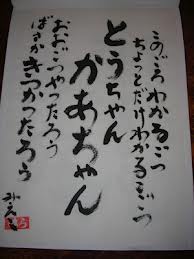 このごろわかるごつ
ちょっとだけわかるごつ
とうちゃん
かあちゃん
おおごつやったろう
ばさかきつかったろう